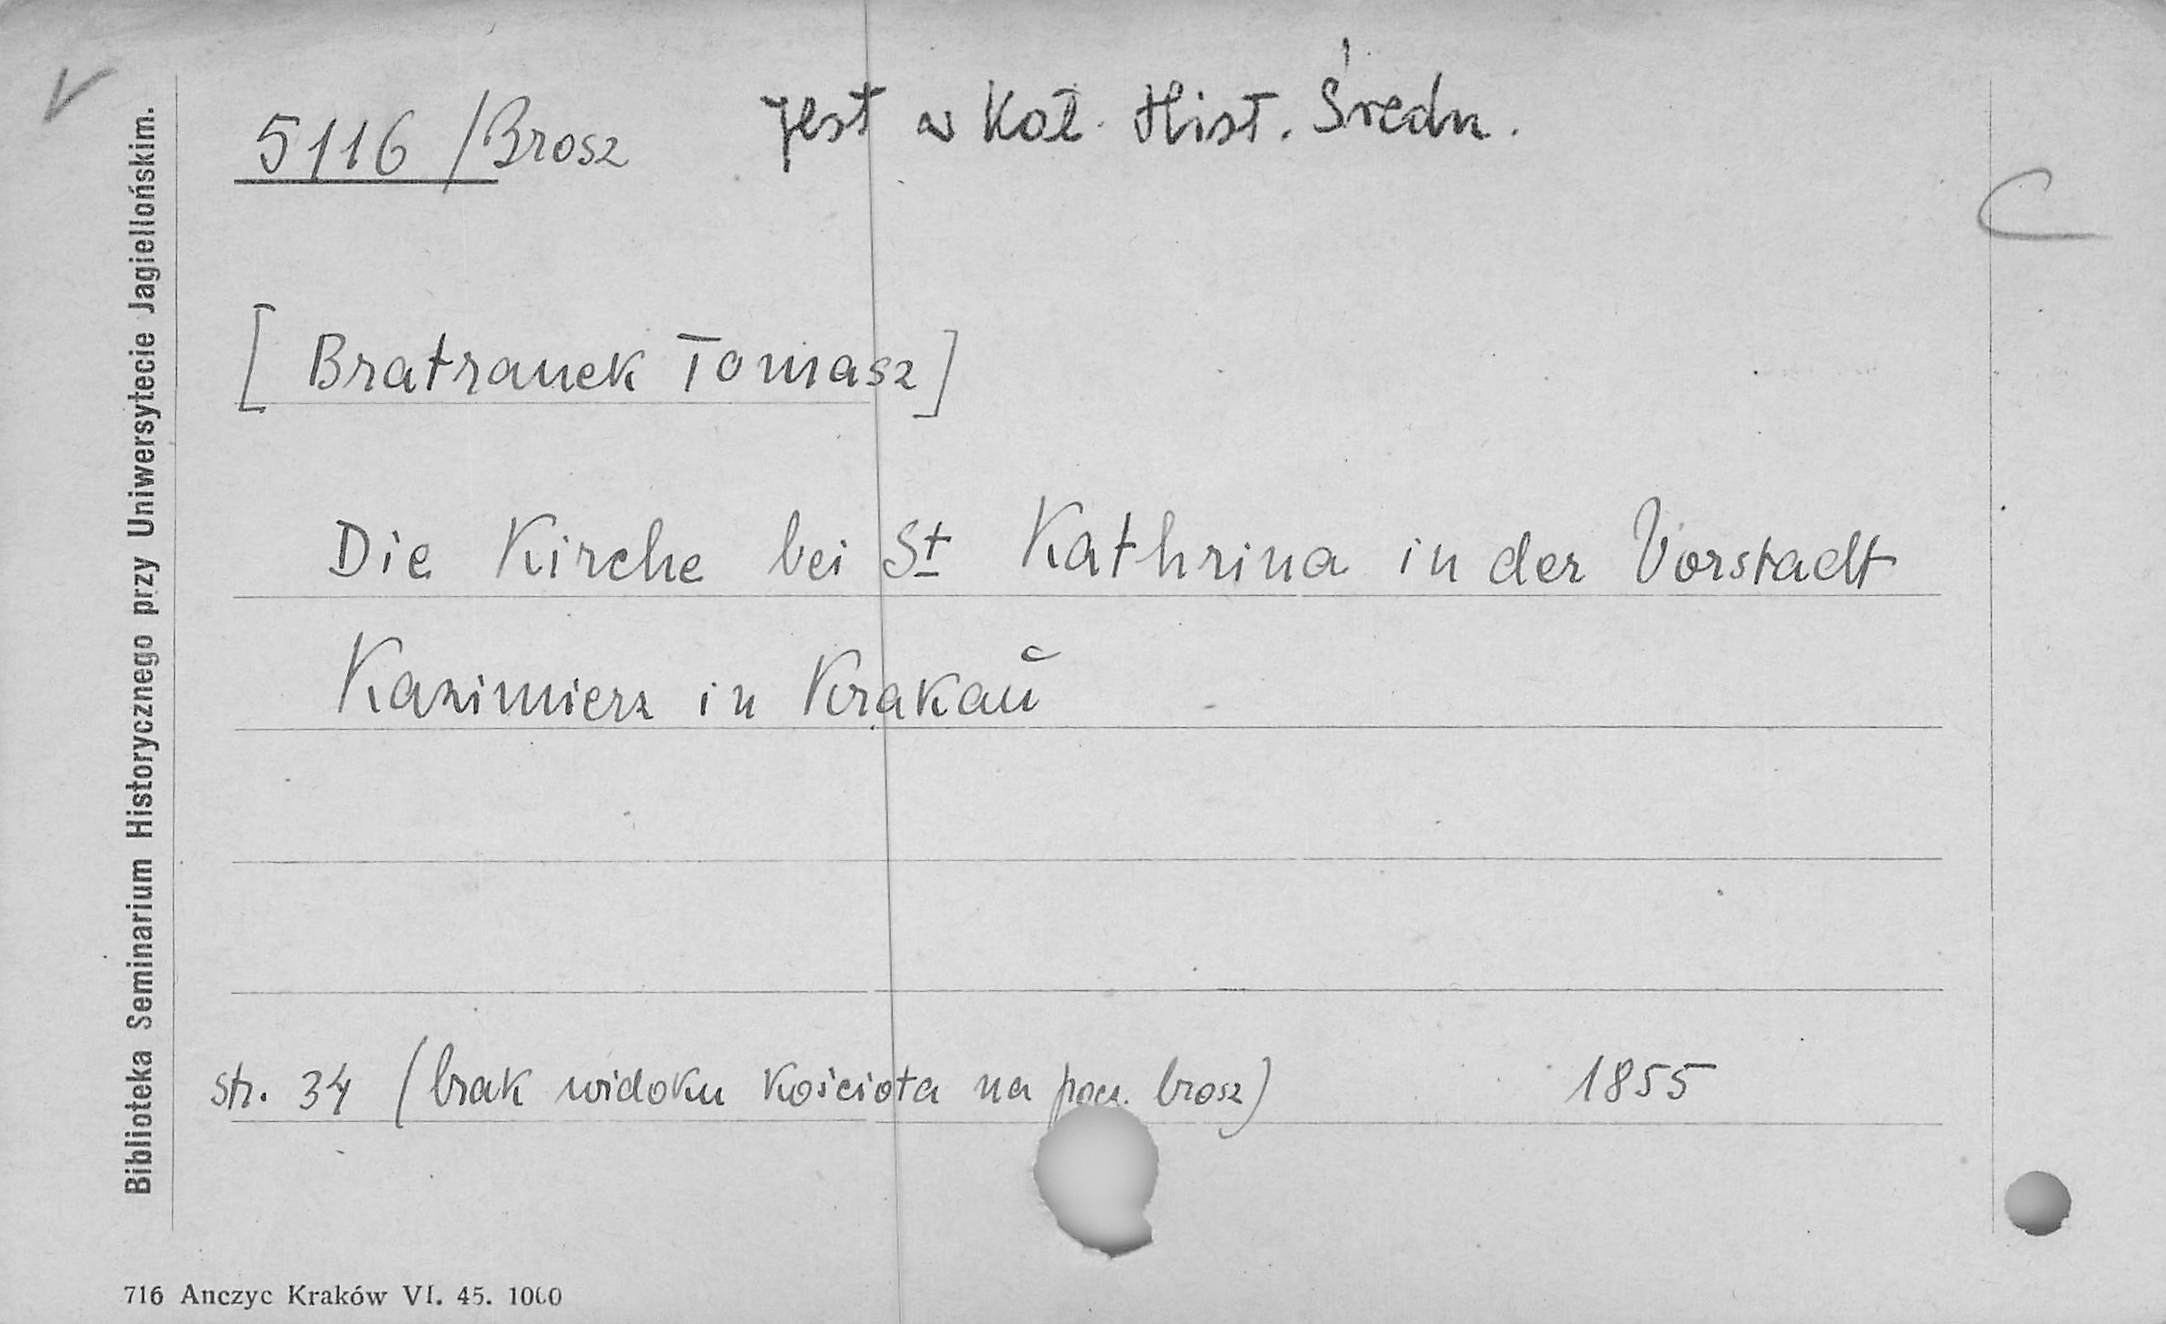 5116/Brosz jest w Kat. Hist. Średn.
C
[Bratranek Tomasz]
Die Kirche bei St Kathrina in der Vorstadt
Kazimierz in Krakaŭ
str. 34 (brak widoku kościoła na pocz. brosz) 1855
Biblioteka Seminarium Historycznego przy Uniwersytecie Jagiellońskim.
716 Anczyc Kraków VI. 45. 1000